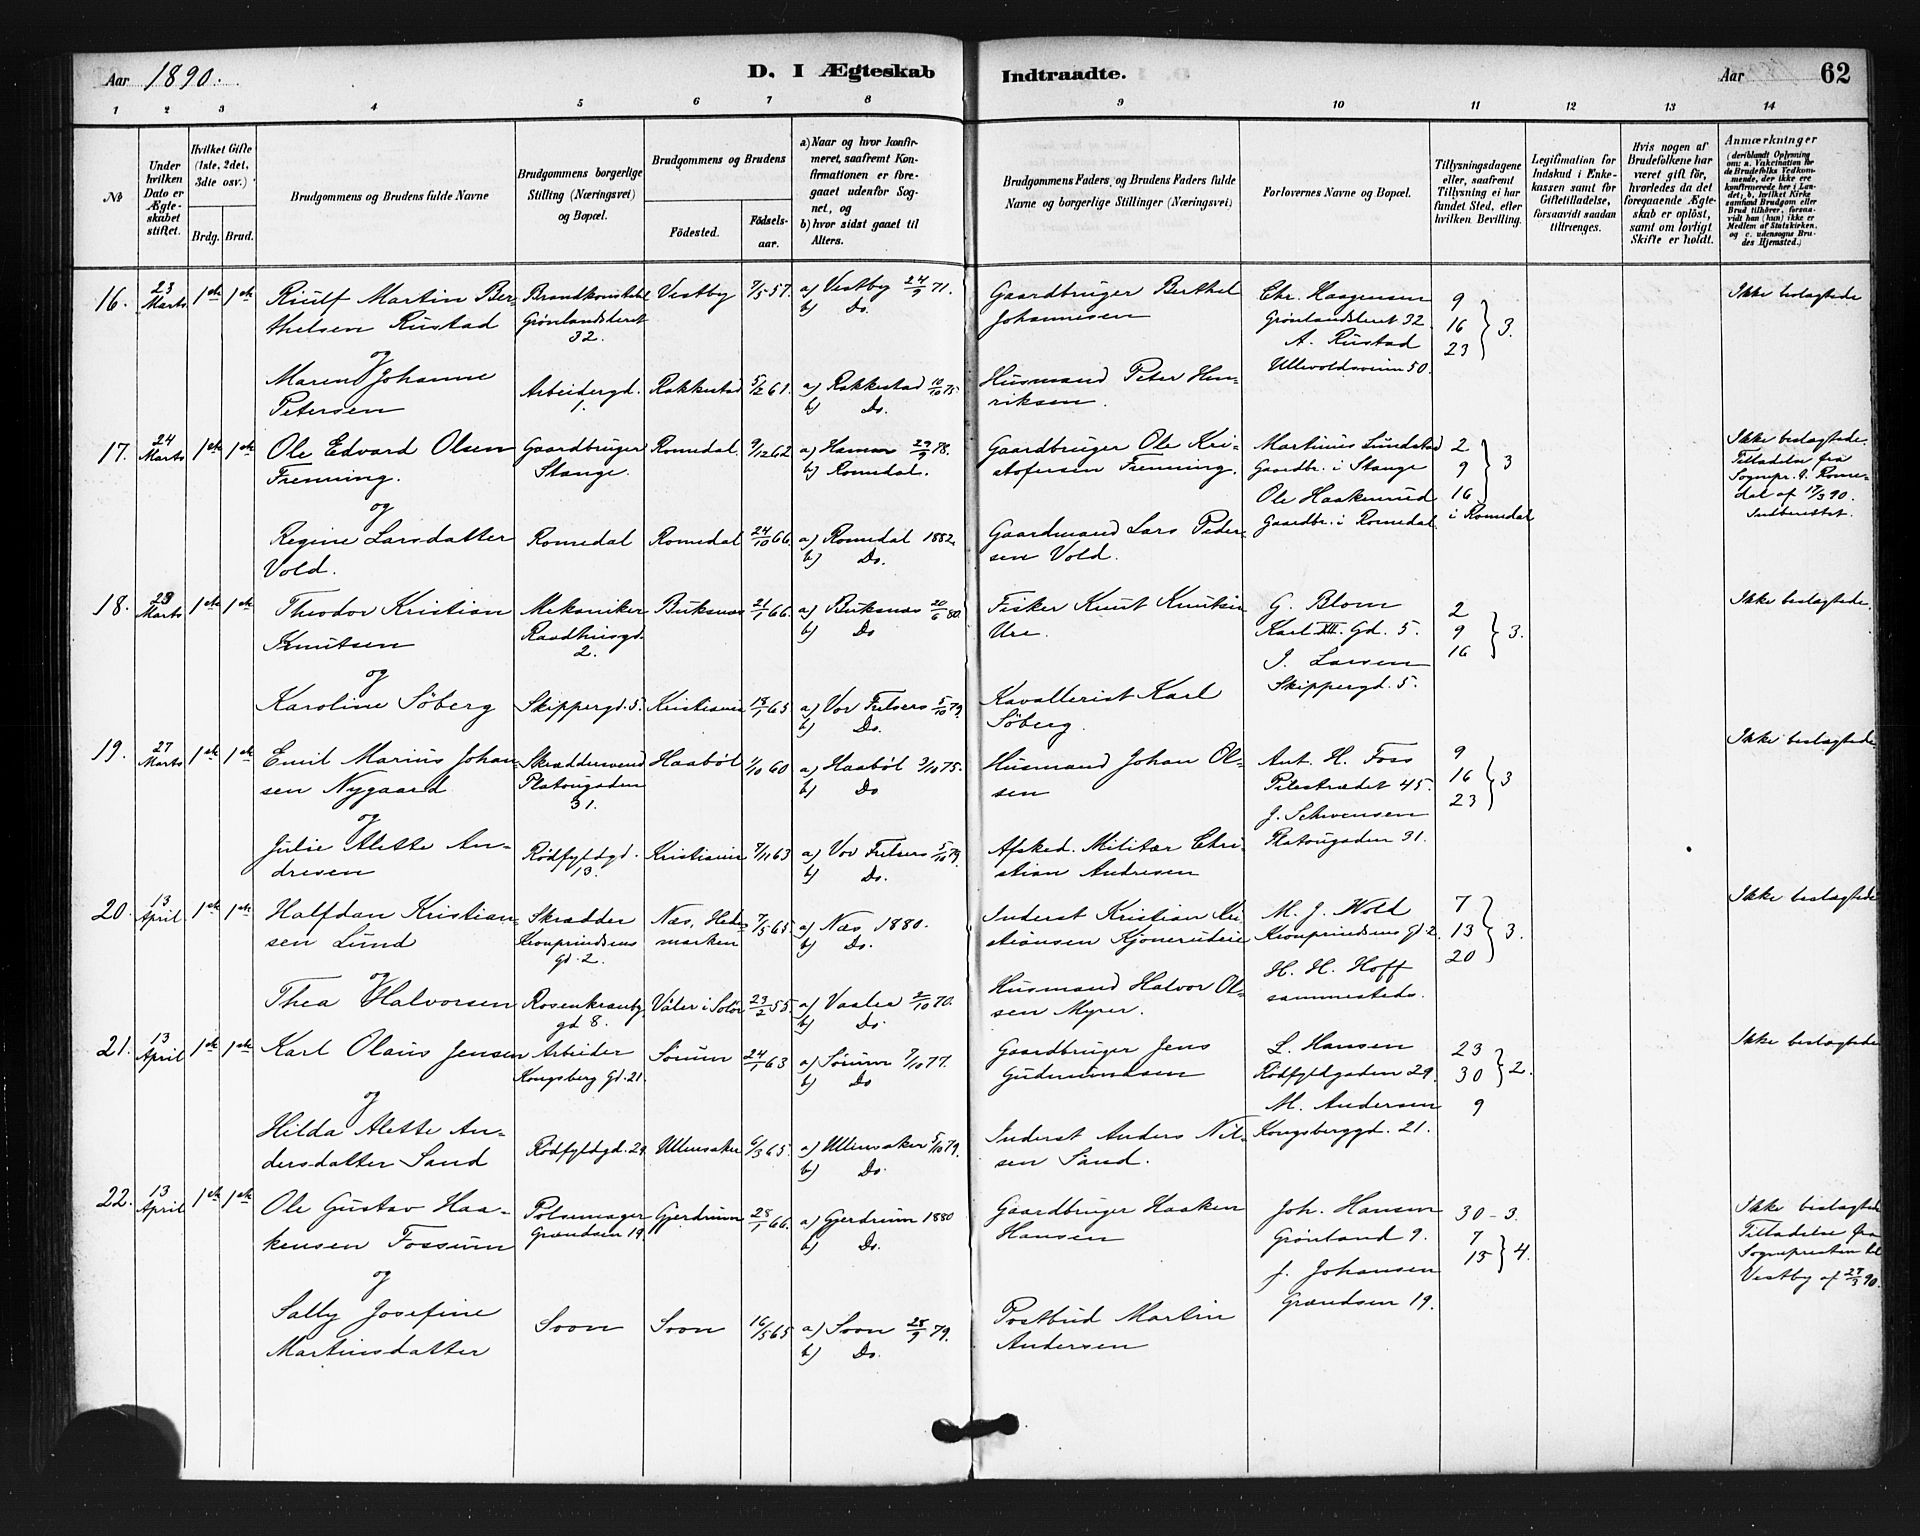 Aar 1890.
D. I Ægteskab Indtraadte.
Aar 62
1 2 3 4 5 6 7 8 9 10 11 12 13 14
№
Under hvilken Dato er Ægteskabet stiftet.
Hvilket Gifte (1ste, 2det, 3die osv.)
Brdg. Brud.
Brudgommens og Brudens fulde Navne
Brudgommens borgerlige Stilling (Næringsvei) og Bopæl.
Brudgommens og Brudens
Födested.
Födselsaar.
a) Naar og hvor konfirmeret, saafremt Konfirmationen er foregaaet udenför Sognet, og
b) hvor sidst gaaet til Alters.
Brudgommens Faders og Brudens Faders fulde Navne og borgerlige Stillinger (Næringsvei)
Forlovernes Navne og Bopæl.
Tillysningsdagene eller, saafremt Tillysning ei har fundet Sted, efter hvilken Bevilling.
Legitimation for Indskud i Enkekassen samt for Giftetilladelse, forsaavidt saadan tiltrænges.
Hvis nogen af Brudefolkene har været gift för, hvorledes da det foregaaende Ægteskab er oplöst, samt om lovligt Skifte er holdt.
Anmærkninger
16. 23 Marts 1ste 1ste
Riulf Martin Berthelsen Rustad
Brandkonstabel Grønlandsleret 32.
Vestby 7/5 57.
a) Vestby 24/9 71.
b) Do.
Gaardbruger Berthel Johannesen
Chr. Haagensen
Grønlandsleret 32
A. Rustad
Ullevoldsveien 50.
9
16
23 } 3.
Ikke beslægtede
og
Maren Johanne Petersen
Arbeidergd. 1.
Rakkestad 5/2 61.
a) Rakkestad 10/10 75.
b) Do.
Husmand Peter Henriksen.
17. 24 Marts 1ste 1ste
Ole Edvard Olsen Frenning.
Gaardbruger Stange.
Romedal. 9/12 62
a) Hamar 29/9 78.
b) Romedal.
Gaardbruger Ole Kristofersen Frenning.
Martinus Lundstad
Gaardbr. i Stange
Ole Haakenrud
Gaardbr. i Romedal
2
9
16 } 3
i Romedal
Ikke beslægtede.
Tilladelse fra
Sognepr. i Romedal af 17/3 90.
Indberettet.
og
Regine Larsdatter Vold.
Romedal
Romedal 24/10 66.
a) Romedal 1882.
b) Do.
Gaardmand Lars Pedersen Vold.
18. Marts 1ste 1ste
Theodor Kristian Knutsen
Mekaniker Raadhusgd. 2.
Buksnæs 21/1 66.
a) Buksnæs 20/6 80.
b) Do
Fisker Knut Knutsen Ure.
G. Blom
Karl XII. Gd. 5.
J. Larsen
Skippergd. 5.
2
9
16 } 3.
Ikke beslægtede.
og
Karoline Söberg
Skippergd. 5.
Kristiania 65
a) Vor Frelsers 5/10 79.
b) Do.
Kavallerist Karl Söberg.
19. 27 Marts 1ste 1ste
Emil Marius Johansen Nygaard
Skræddersvend Platougaden 31.
Haaböl 1/10 60
a) Haaböl 3/10 75.
b) Do
Husmand Johan Olsen
Ant. H. Foss
Pilestrædet 45.
J. Schwensen
Platougaden 31.
9
16
23 } 3
Ikke beslægtede
og
Julie Alette Andresen
Rödfyldgd. 13.
Kristiania 7/11 63
a) Vor Frelsers 5/10 79.
b) Do.
Afsked. Militær Christian Andresen
20. 13 April 1ste 1ste
Halfdan Kristiansen Lund
Skrædder Kronprindsens gd. 2.
Næs, Hedemarken 7/5 65
a) Næs, 1880.
b) Do.
Inderst Kristian Kristiansen
M. J. Wold
Kronprindsens gd 2.
H. H. Hoff
sammesteds.
7
13
20 } 3.
Ikke beslægtede
og
Thea Halvorsen
gd 8.
Våler i Solör 23/2 55.
a) Vaaler 2/10 70.
b) Do.
Husmand Halvor Olsen Myrer.
21. 13 April 1ste 1ste
Karl Olaus Jensen
Arbeider Kongsberg Gd. 21.
Sörum 24/1 63
a) Sörum 7/10 77.
b) Do
Gaardbruger Jens Gudmundsen
L. Hansen
Rödfyldgaden 29.
M. Andersen
Kongsberggd. 21.
23
30 } 2.
9
Ikke beslægtede
og
Hilda Alette Andersdatter Sand
Rödfyldgd. 29.
Ullensaker 6/3 65.
a) Ullensaker 5/10 79.
b) Do.
Inderst Anders Nilsen Sand.
22. 13 April 1ste 1ste
Ole Gustav Haakensen Fossum
Pölsemager Grændsen 19.
Gjerdrum 28/1 66.
a) Gjerdrum 1880
b) Do.
Gaardbruger Haaken Hansen
Joh. Hansen
Grønland 9.
J. Johansen
Grændsen 19.
30 - 3.
7
13 } 4.
Ikke beslægtede
Tilladelse fra
Sognepresten til
Vestby af 27/3 90.
og
Sally Josefine Martinsdatter
Soon
Soon 16/5 65
a) Soon 28/9 79.
b) Do.
Postbud Martin Andersen